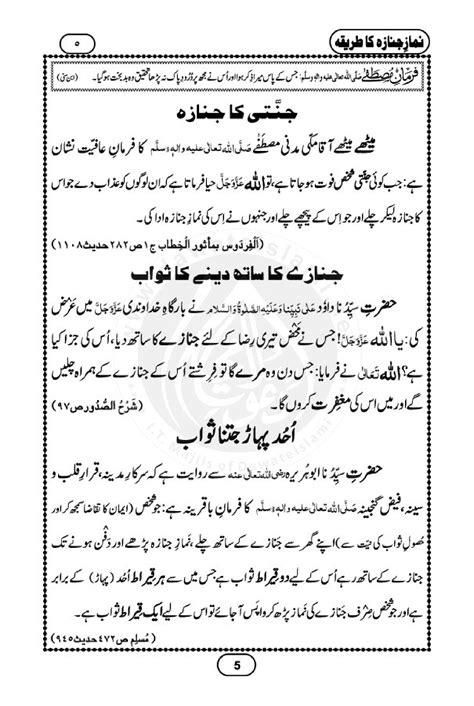 نمازِ جنازہ کا طریقہ ۵
فرمانِ مصطفٰے صلَّی اللہ تعالٰی علیہ واٰلہٖ وسلَّم: جس کے پاس میرا ذکر ہوا اور اُس نے مجھ پر دُرُودِ پاک نہ پڑھا تحقیق وہ بد بخت ہوگیا۔ (ابن سنی)
جنّتی کا جنازہ
میٹھے میٹھے آقا مکّی مدنی مصطفٰے صلَّی اللہ تعالٰی علیہ واٰلہٖ وسلَّم کا فرمانِ عافیت نشان
ہے: جب کوئی جنّتی شخص فوت ہو جاتا ہے، تو اللہ عَزَّوَجَلَّ حیا فرماتا ہے کہ ان لوگوں کو عذاب دے جو اس
کا جنازہ لیکر چلے اور جو اِس کے پیچھے چلے اور جنہوں نے اِس کی نمازِ جنازہ ادا کی۔
(اَلْفِردَوس بمأثور الْخِطاب ج۱ ص۲۸۲ حدیث ۱۱۰۸)
جنازے کا ساتھ دینے کا ثواب
حضرتِ سیِّدُنا داوٗد عَلٰی نَبِیِّنا وَعَلَیْہِ الصَّلٰوۃُ وَالسَّلام نے بارگاہِ خداوندی عَزَّوَجَلَّ میں عرض
کی: یا اللہ عَزَّوَجَلَّ! جس نے محض تیری رضا کے لئے جنازے کا ساتھ دیا، اُس کی جزا کیا
ہے؟ اللہ تَعَالٰی نے فرمایا: جس دن وہ مرے گا تو فِرِشتے اُس کے جنازے کے ہمراہ چلیں
گے اور میں اس کی مغفِرت کروں گا۔ (شَرْحُ الصُّدُور ص۹۷)
اُحُد پہاڑ جتنا ثواب
حضرتِ سیِّدُنا ابوہُریرہ رضی اللہ تعالٰی عنہ سے روایت ہے کہ سرکارِ مدینہ، قرارِ قلب و
سینہ، فیض گنجینہ صلَّی اللہ تعالٰی علیہ واٰلہٖ وسلَّم کا فرمانِ باقرینہ ہے: جو شخص (ایمان کا تقاضا سمجھ کر اور
حُصولِ ثواب کی نیّت سے) اپنے گھر سے جنازے کے ساتھ چلے، نمازِ جنازہ پڑھے اور دَفْن ہونے تک
جنازے کے ساتھ رہے اُس کے لیے دو قِیراط ثواب ہے جس میں سے ہر قِیراط اُحُد (پہاڑ) کے برابر
ہے اور جو شخص صِرْف جنازے کی نماز پڑھ کر واپَس آ جائے تو اس کے لیے ایک قِیراط ثواب ہے۔
(مُسلِم ص۴۷۲ حدیث ۹۴۵)
5